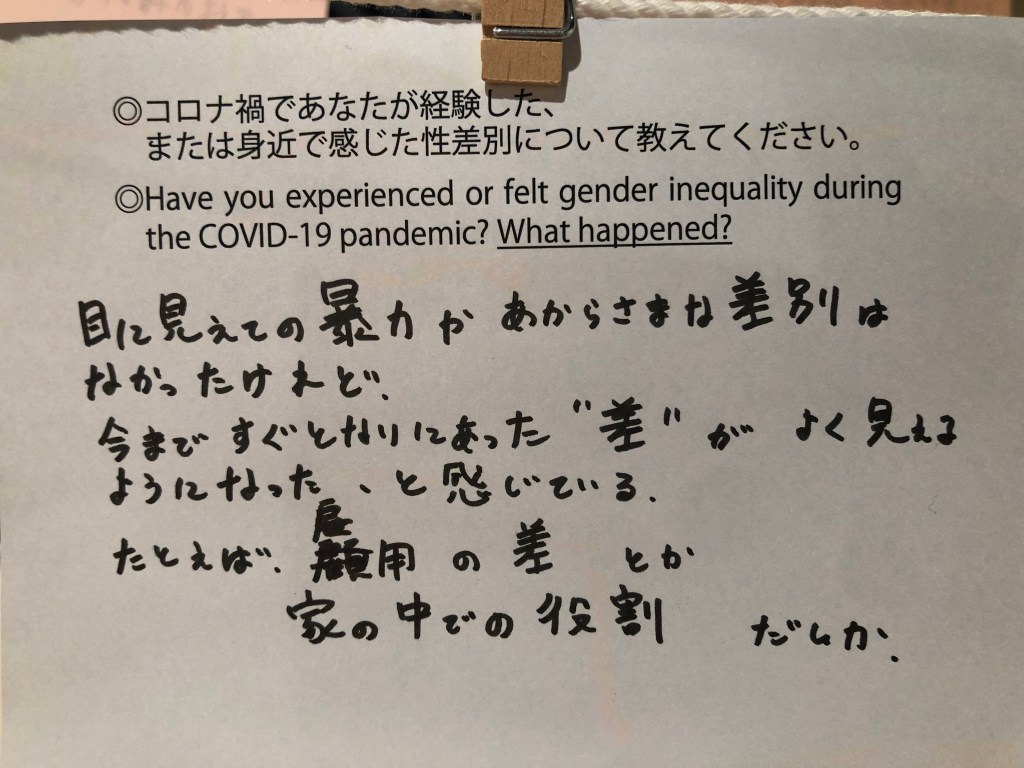 ◎コロナ禍であなたが経験した、
または身近で感じた性差別について教えてください。
◎Have you experienced or felt gender inequality during
the COVID-19 pandemic? What happened?
目に見えての暴力や あからさまな差別は
なかったけれど、
今まで すぐとなりにあった "差" が よく見える
ようになった、と感じている.
たとえば、雇用の差 とか
家の中での役割 だとか.